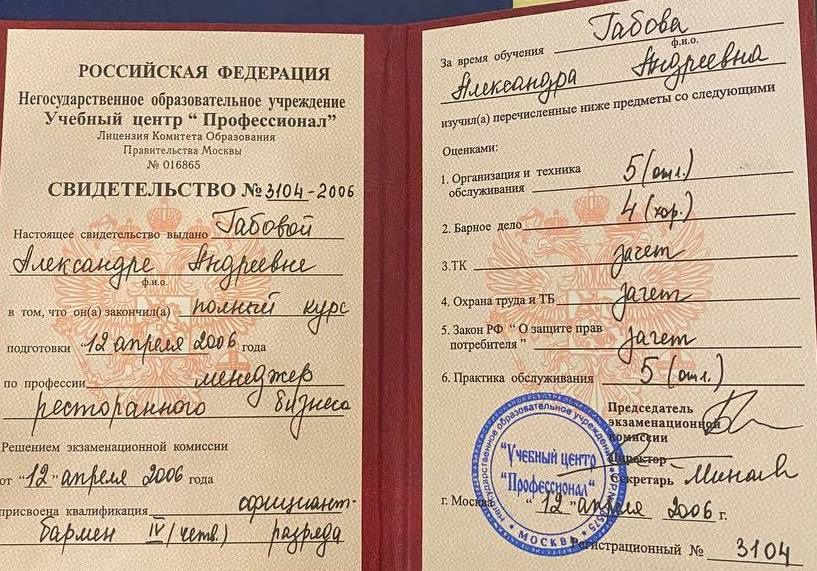 РОССИЙСКАЯ ФЕДЕРАЦИЯ
Негосударственное образовательное учреждение
Учебный центр “ Профессионал”
Лицензия Комитета Образования
Правительства Москвы
№ 016865
СВИДЕТЕЛЬСТВО № 3104-2006
Настоящее свидетельство выдано Габовой
Александре Андреевне
ф.и.о.
в том, что он(а) закончил(а) полный курс
подготовки “12 апреля 2006 года
по профессии менеджер
ресторанного бизнеса
Решением экзаменационной комиссии
от “12” апреля 2006 года
присвоена квалификация официант-
бармен IV (четв.) разряда
За время обучения Габова
ф.и.о.
Александра Андреевна
изучил(а) перечисленные ниже предметы со следующими
Оценками:
1. Организация и техника
обслуживания 5 (отл.)
2. Барное дело 4 (хор.)
3.ТК зачет
4. Охрана труда и ТБ зачет
5. Закон РФ “ О защите прав
потребителя ” зачет
6. Практика обслуживания 5 (отл.)
Председатель
экзаменационной
комиссии
Директор
Секретарь
г. Москва “12” апреля 2006 г.
Регистрационный № 3104
негосударственное образовательное учреждение
“Учебный центр
“Профессионал”
МОСКВА